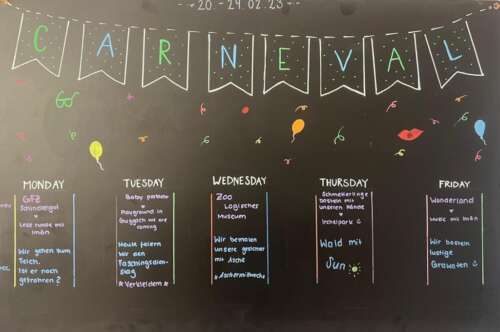 20. - 24.02.23
CARNEVAL
MONDAY
GFZ
Schnidergut
♥
Lese runde mit
Imân
Wir gehen zum
Teich.
Ist er noch
gefrohren?
TUESDAY
Baby
♥
Playground in
Guggach we are
coming
Heute feiern
Wir den
Faschingsdien-
stag
*Verkleiden*
WEDNESDAY
Zoo
Logisches
Museum
Wir bemalen
unsere gesichter
mit Asche
#Aschermittwoch
THURSDAY
Schmetterlinge
basteln mit
unseren Hände
♥
Irchelpark
Wald mit
Sun
FRIDAY
Wonderland
♥
Musik mit Imân
Wir basteln
lustige